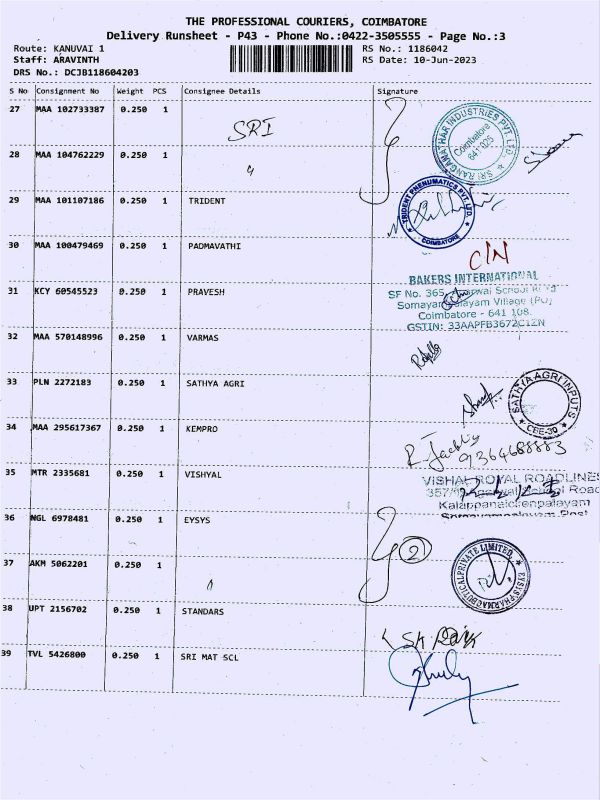 THE PROFESSIONAL COURIERS, COIMBATORE
Delivery Runsheet - P43 - Phone No.:0422-3505555 - Page No.:3
Route: KANUVAI 1 RS No.: 1186042
Staff: ARAVINTH RS Date: 10-Jun-2023
DRS No.: DCJB118604203
S No Consignment No Weight PCS Consignee Details Signature
27 MAA 102733387 0.250 1 SRI
SRI RANGANATHAR INDUSTRIES PVT. LTD.
Coimbatore
641 025
28 MAA 104762229 0.250 1 "
29 MAA 101107186 0.250 1 TRIDENT
TRIDENT PNEUMATICS PVT. LTD.
COIMBATORE
30 MAA 100479469 0.250 1 PADMAVATHI
C/N
31 KCY 60545523 0.250 1 PRAVESH
BAKERS INTERNATIONAL
SF No. 365, School
Somayampalayam Village (PO)
Coimbatore - 641 108.
GSTIN: 33AAPFB3672C1ZN
32 MAA 570148996 0.250 1 VARMAS
33 PLN 2272183 0.250 1 SATHYA AGRI
SATHYA AGRI INPUTS
CBE-30
34 MAA 295617367 0.250 1 KEMPRO
9364688883
35 MTR 2335681 0.250 1 VISHYAL
VISHAL ROYAL ROADLINES
Agarwal School Road
Kalappanaickenpalayam
Somayampalayam Post
36 NGL 6978481 0.250 1 EYSYS
2
EYSIS PHARMACEUTICAL PRIVATE LIMITED
37 AKM 5062201 0.250 1 "
38 UPT 2156702 0.250 1 STANDARS
39 TVL 5426800 0.250 1 SRI MAT SCL